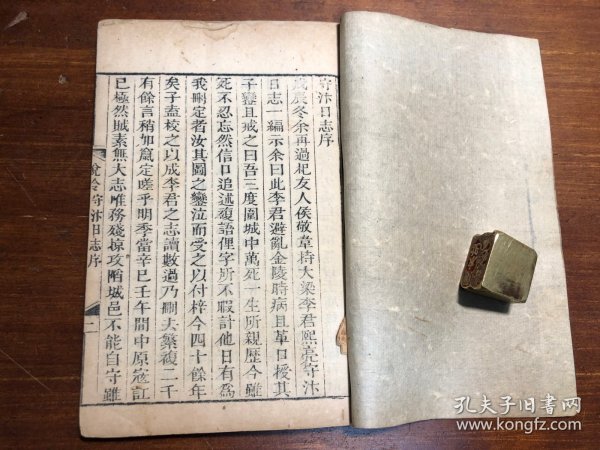 守汴日志序
戊辰冬余再過杞友人侯敬章持大梁李君熙亮守汴
日志一編示余曰此李君避亂金陵時病且革口授其
子巒且戒之曰吾三度圍城中萬死一生所親歷今雖
死不忍忘然信口追述複語俚字所不暇計他日有為
我刪定者汝其圖之巒泣而受之以付梓今四十餘年
矣子盍校之以成李君之志讀數過乃刪夫繁複二千
有餘言稍加竄定嗟乎明季當辛巳壬午間中原寇訌
已極然賊素無大志唯務殘掠攻陷城邑不能自守雖
說鈴 守汴日志序
一
孔夫子旧書网
www.kongfz.com